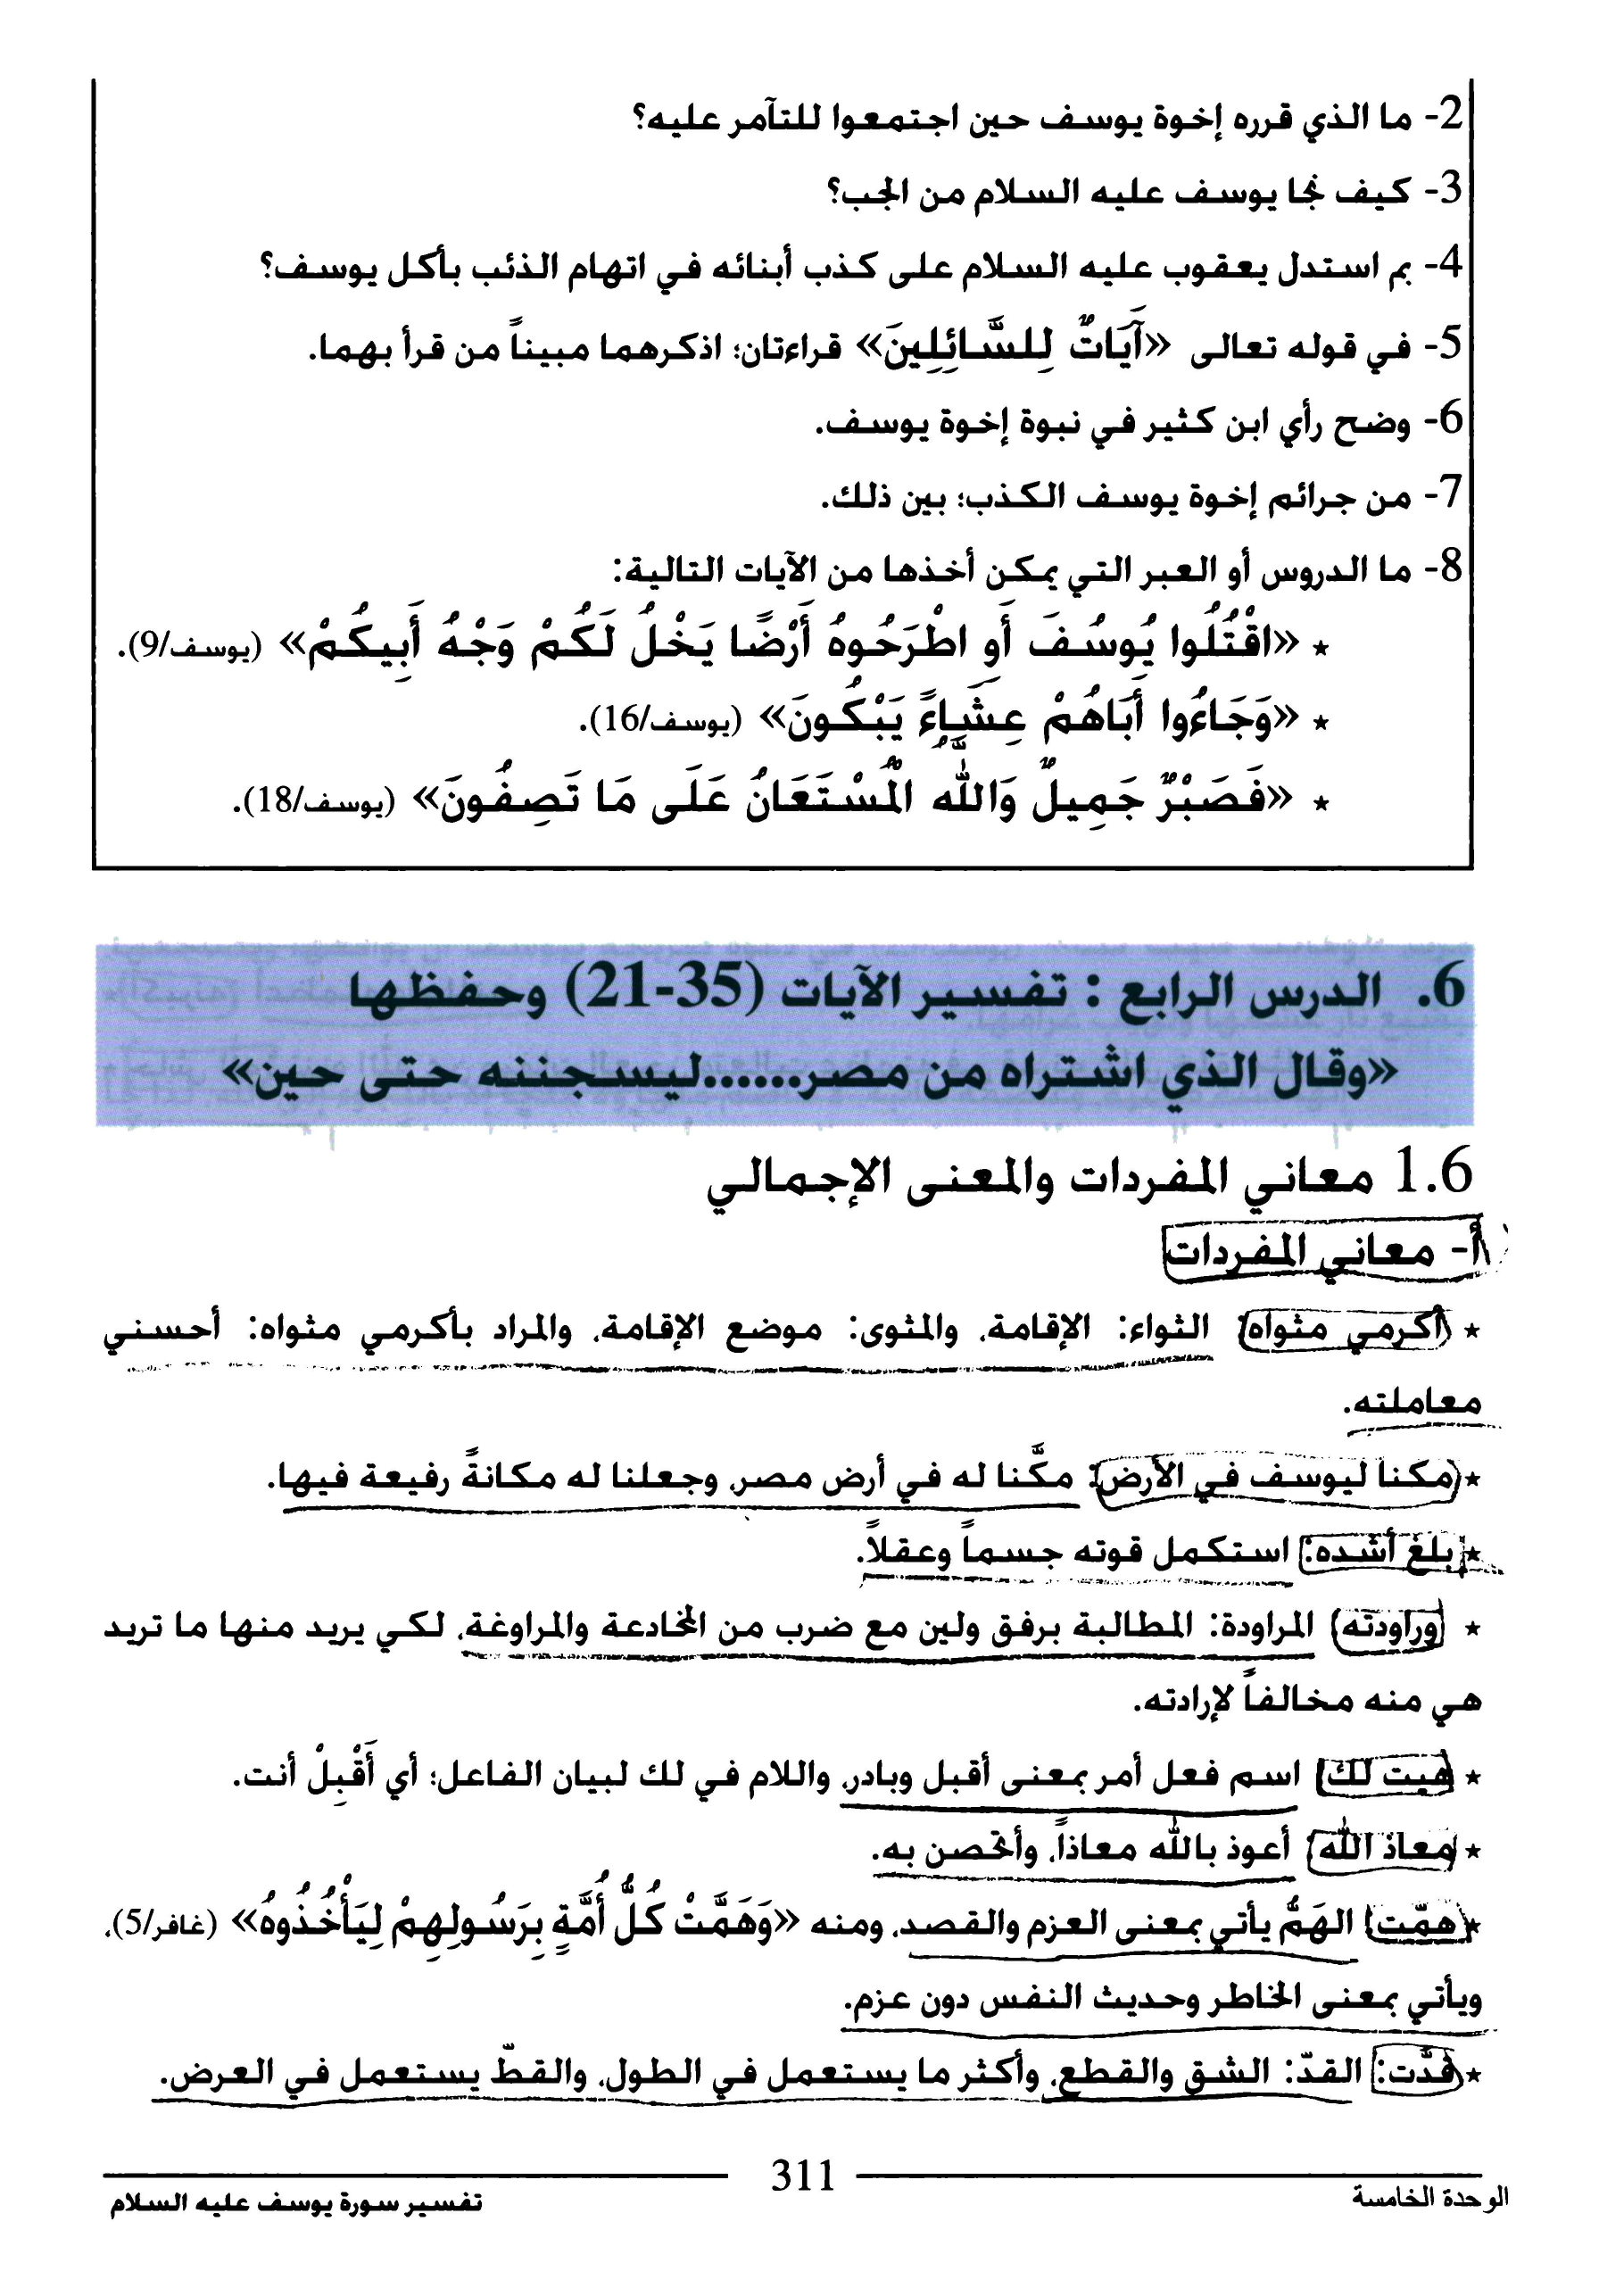 2- ما الذي قرره إخوة يوسف حين اجتمعوا للتآمر عليه؟
3- كيف نجا يوسف عليه السلام من الجب؟
4- بم استدل يعقوب عليه السلام على كذب أبنائه في اتهام الذئب بأكل يوسف؟
5- في قوله تعالى «آَيَاتٌ لِلسَّائِلِينَ» قراءتان؛ اذكرهما مبيناً من قرأ بهما.
6- وضح رأي ابن كثير في نبوة إخوة يوسف.
7- من جرائم إخوة يوسف الكذب؛ بين ذلك.
8- ما الدروس أو العبر التي يمكن أخذها من الآيات التالية:
٭ «اقْتُلُوا يُوسُفَ أَوِ اطْرَحُوهُ أَرْضًا يَخْلُ لَكُمْ وَجْهُ أَبِيكُمْ» (يوسف/9).
٭ «وَجَاءُوا أَبَاهُمْ عِشَاءً يَبْكُونَ» (يوسف/16).
٭ «فَصَبْرٌ جَمِيلٌ وَاللَّهُ الْمُسْتَعَانُ عَلَى مَا تَصِفُونَ» (يوسف/18).
6. الدرس الرابع : تفسير الآيات (35-21) وحفظها
«وقال الذي اشتراه من مصر......ليسجننه حتى حين»
1.6 معاني المفردات والمعنى الإجمالي
أ- معاني المفردات
٭ أكرمي مثواه: الثواء: الإقامة، والمثوى: موضع الإقامة، والمراد بأكرمي مثواه: أحسني
معاملته.
٭ مكنا ليوسف في الأرض: مكَّنا له في أرض مصر، وجعلنا له مكانةً رفيعة فيها.
٭ بلغ أشده: استكمل قوته جسماً وعقلاً.
٭ وراودته: المراودة: المطالبة برفق ولين مع ضرب من المخادعة والمراوغة، لكي يريد منها ما تريد
هي منه مخالفاً لإرادته.
٭ هيت لك: اسم فعل أمر بمعنى أقبل وبادر، واللام في لك لبيان الفاعل؛ أي أَقْبِلْ أنت.
٭ معاذ الله: أعوذ بالله معاذاً، وأتحصن به.
٭ همّت: الهَمُّ يأتي بمعنى العزم والقصد، ومنه «وَهَمَّتْ كُلُّ أُمَّةٍ بِرَسُولِهِمْ لِيَأْخُذُوهُ» (غافر/5)،
ويأتي بمعنى الخاطر وحديث النفس دون عزم.
٭ قدَّت: القدّ: الشق والقطع، وأكثر ما يستعمل في الطول، والقطّ يستعمل في العرض.
الوحدة الخامسة
311
تفسير سورة يوسف عليه السلام